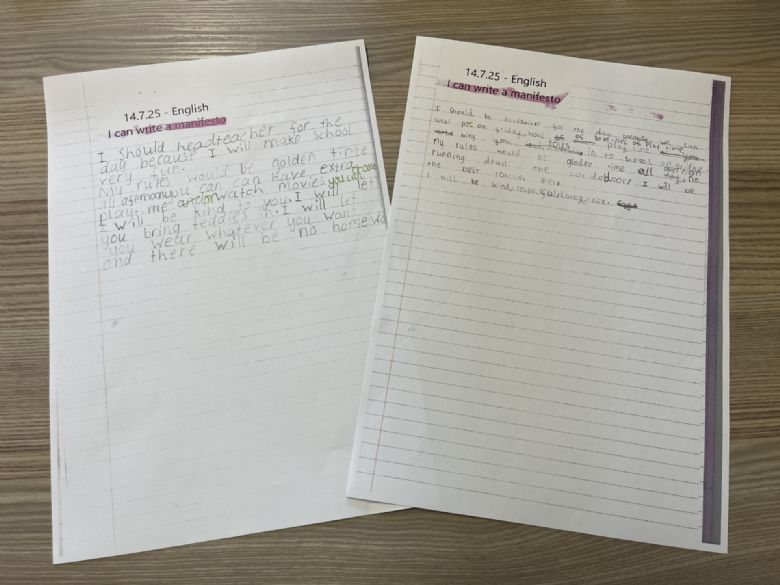 14.7.25 - English
I can write a manifesto
I should headteacher for the
day because I will make school
very fun.
My rules would be golden time
all afernoon you can have extra
play time and or watch movies you choose
I will be kind to you. I will let
you bring teddies in. I will let
you wear whatever you want
and there will be no homewo
14.7.25 - English
I can write a manifesto
I should be for the day because we can
wear PJs on friday have play time
bing you toys in to school on friday
My rules would be golden time all no
running down the I will be
the best teacher ever
I will be kind